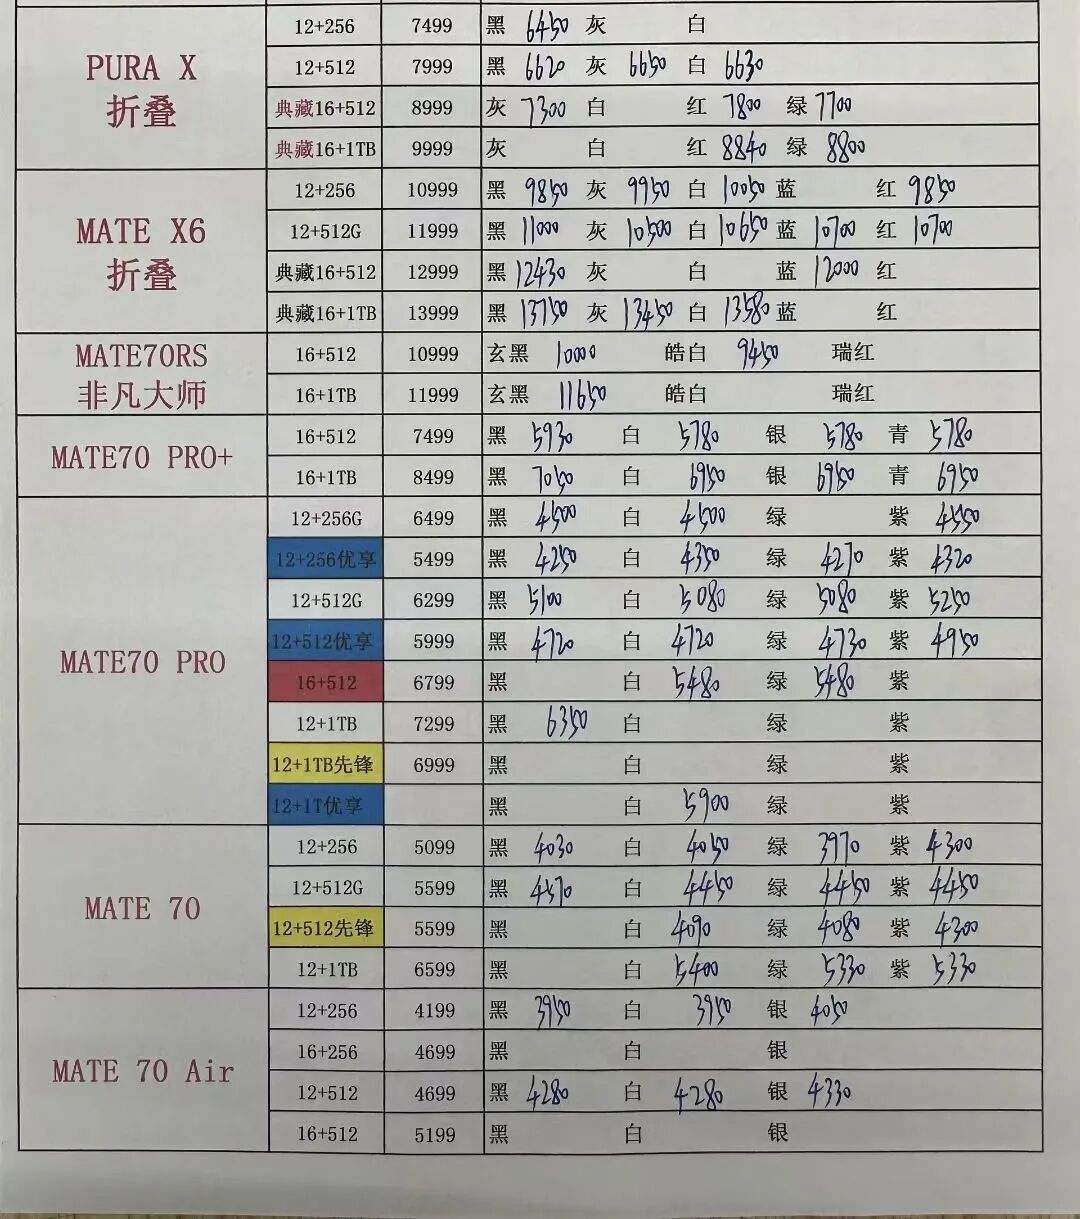 PURA X
折叠
12+256 7499 黑 6450 灰 白
12+512 7999 黑 6620 灰 6650 白 6630
典藏16+512 8999 灰 7300 白 红 7800 绿 7700
典藏16+1TB 9999 灰 白 红 8840 绿 8800
MATE X6
折叠
12+256 10999 黑 9850 灰 9950 白 10050 蓝 红 9850
12+512G 11999 黑 11000 灰 10500 白 10650 蓝 10700 红 10700
典藏16+512 12999 黑 12430 灰 白 蓝 12000 红
典藏16+1TB 13999 黑 13750 灰 13450 白 13580 蓝 红
MATE70RS
非凡大师
16+512 10999 玄黑 10000 皓白 9450 瑞红
16+1TB 11999 玄黑 11650 皓白 瑞红
MATE70 PRO+
16+512 7499 黑 5930 白 5780 银 5780 青 5780
16+1TB 8499 黑 7050 白 6950 银 6950 青 6950
MATE70 PRO
12+256G 6499 黑 4500 白 4500 绿 紫 4550
12+256优享 5499 黑 4250 白 4350 绿 4270 紫 4320
12+512G 6299 黑 5100 白 5080 绿 5080 紫 5250
12+512优享 5999 黑 4720 白 4720 绿 4730 紫 4950
16+512 6799 黑 白 5480 绿 5480 紫
12+1TB 7299 黑 6350 白 绿 紫
12+1TB先锋 6999 黑 白 绿 紫
12+1T优享 黑 白 5900 绿 紫
MATE 70
12+256 5099 黑 4030 白 4050 绿 3970 紫 4300
12+512G 5599 黑 4570 白 4450 绿 4450 紫 4450
12+512先锋 5599 黑 白 4090 绿 4080 紫 4300
12+1TB 6599 黑 白 5400 绿 5330 紫 5330
MATE 70 Air
12+256 4199 黑 3950 白 3950 银 4050
16+256 4699 黑 白 银
12+512 4699 黑 4280 白 4280 银 4330
16+512 5199 黑 白 银